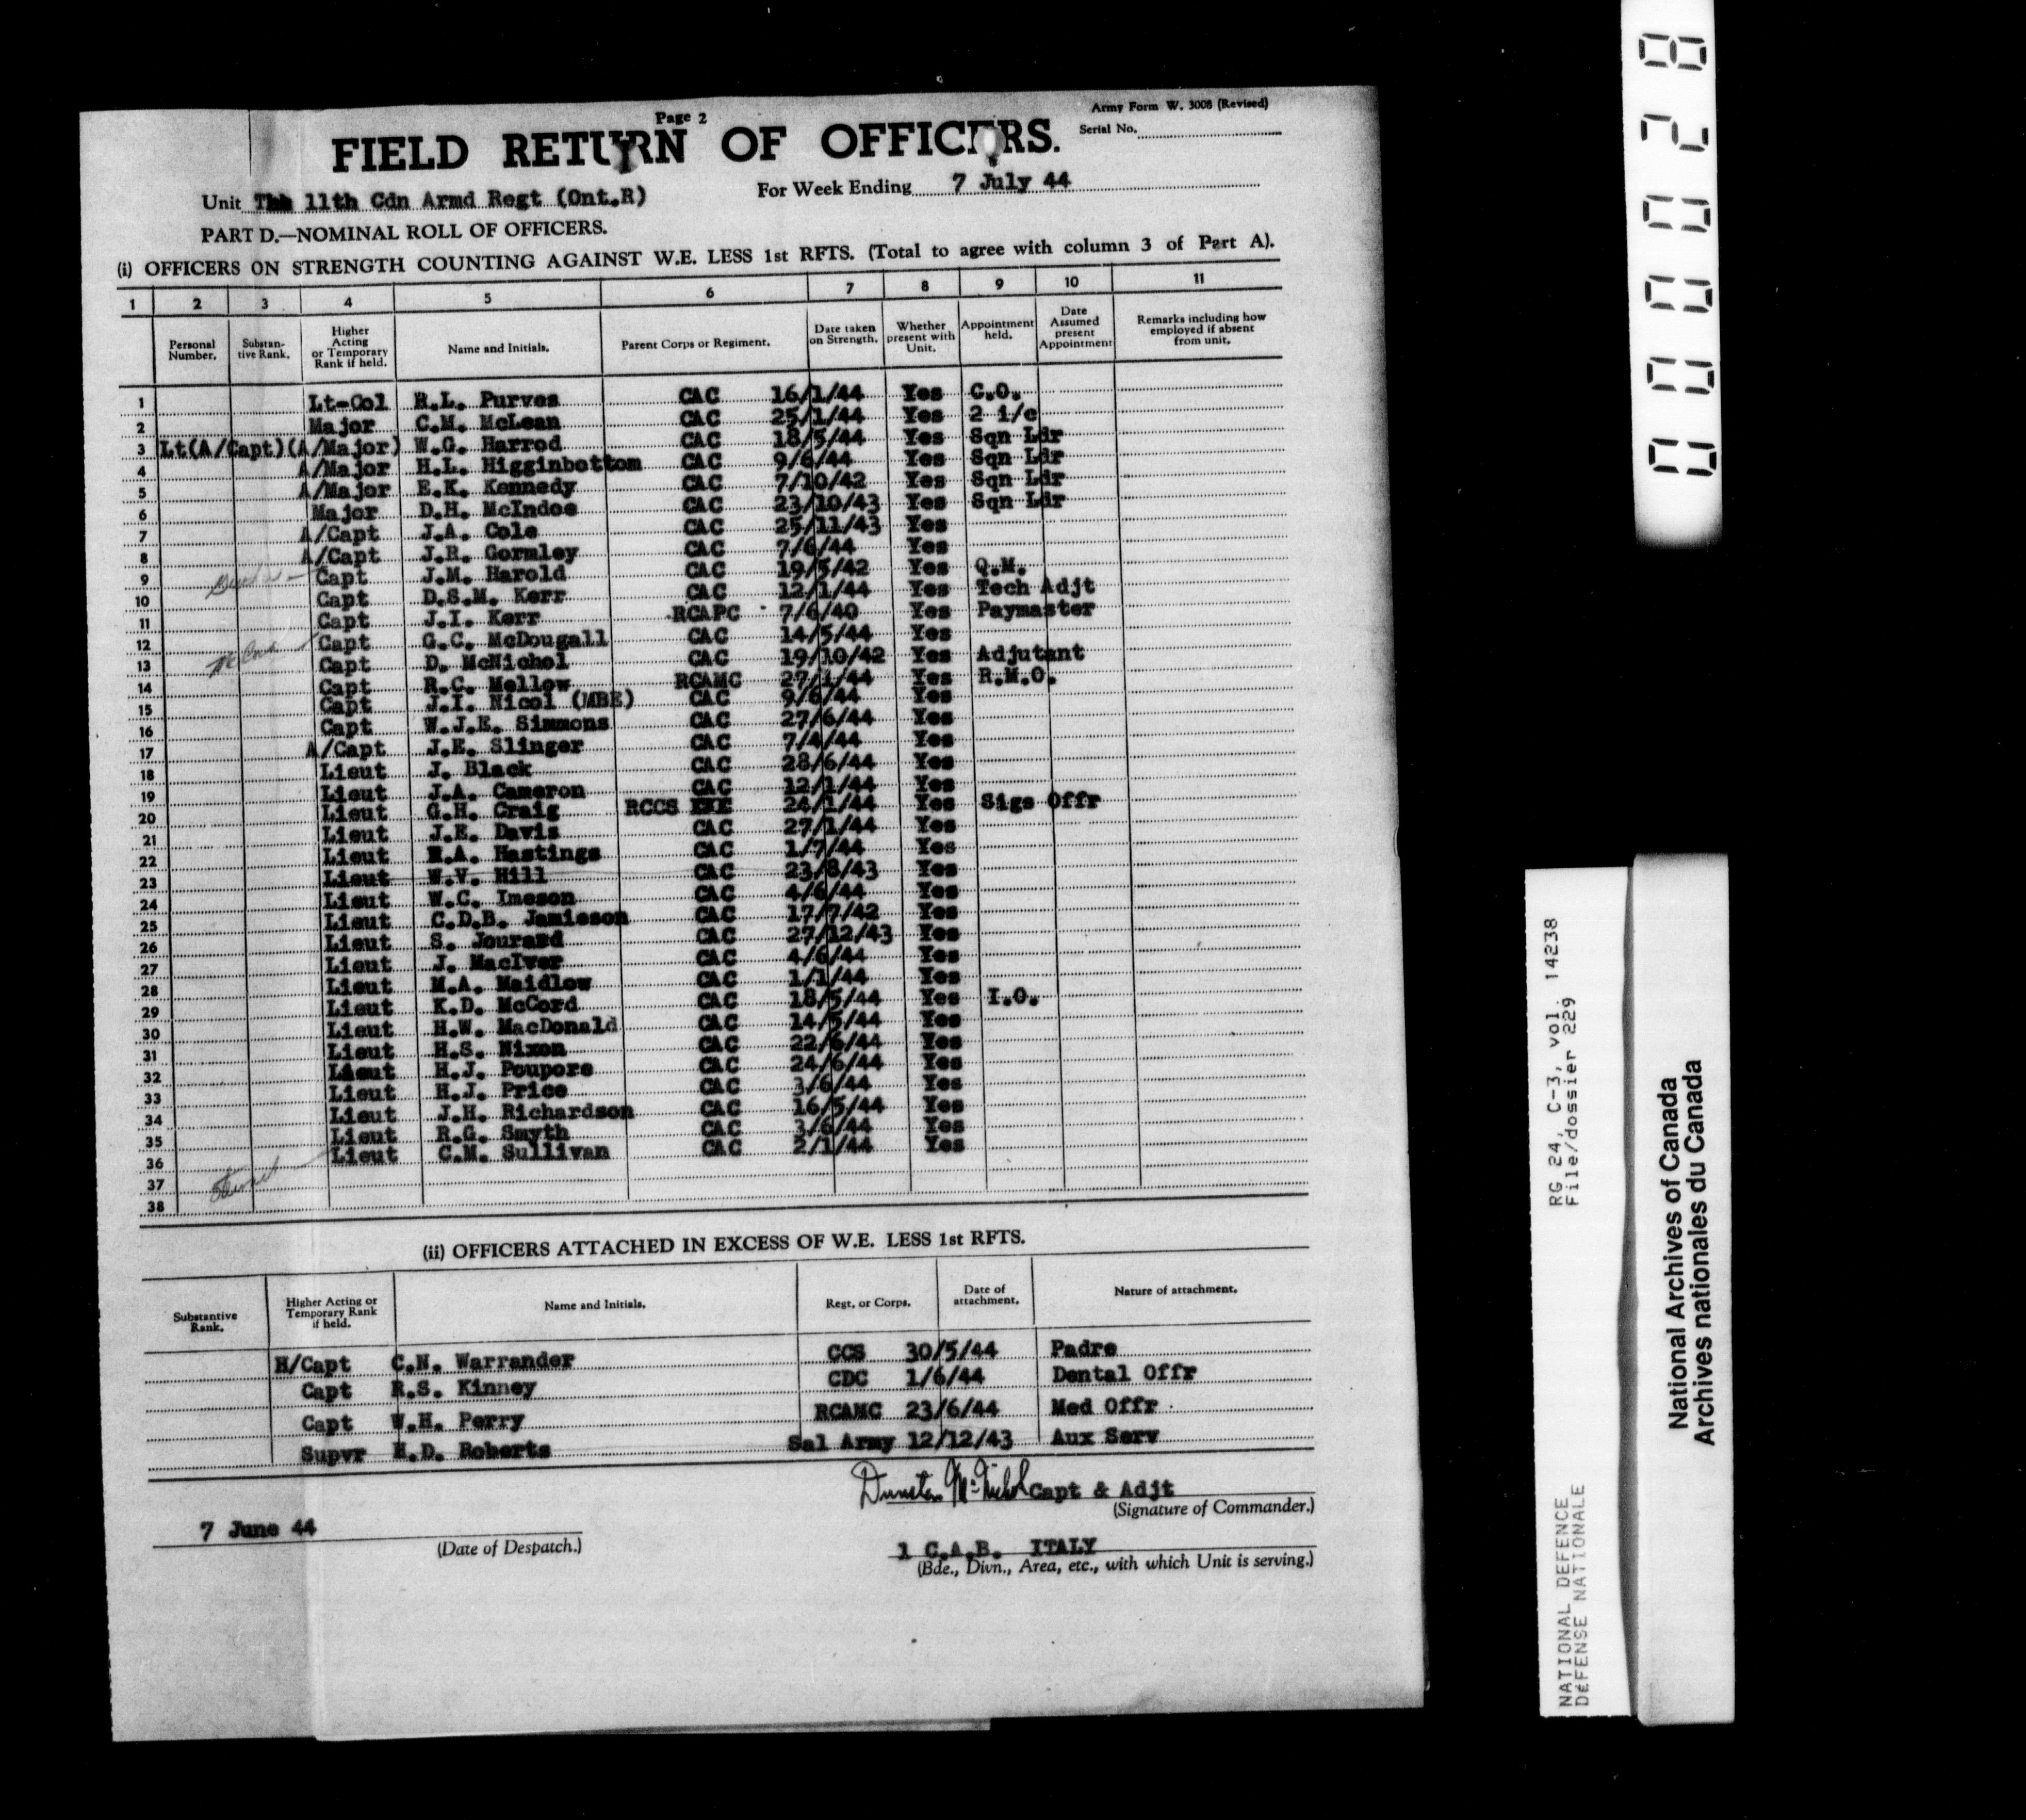 Page 2
Army Form W. 3008 (Revised)
FIELD RETURN OF OFFICERS.
Serial No.
Unit The 11th Cdn Armd Regt (Ont.R)
For Week Ending 7 July 44
PART D.—NOMINAL ROLL OF OFFICERS.
(i) OFFICERS ON STRENGTH COUNTING AGAINST W.E. LESS 1st RFTS. (Total to agree with column 3 of Part A).
1 2 3 4 5 6 7 8 9 10 11
Personal Number. Substan-tive Rank. Higher Acting or Temporary Rank if held. Name and Initials. Parent Corps or Regiment. Date taken on Strength. Whether present with Unit. Appointment held. Date Assumed present Appointment Remarks including how employed if absent from unit.
1 Lt-Col R.L. Purves CAC 16/1/44 Yes C.O.
2 Major C.M. McLean CAC 25/1/44 Yes 2 i/c
3 Lt(A/Capt)(A/Major) W.G. Harrod CAC 18/5/44 Yes Sqn Ldr
4 A/Major H.L. Higginbottom CAC 9/6/44 Yes Sqn Ldr
5 A/Major E.K. Kennedy CAC 7/10/42 Yes Sqn Ldr
6 Major D.H. McIndoe CAC 23/10/43 Yes Sqn Ldr
7 A/Capt J.A. Cole CAC 25/11/43 Yes
8 A/Capt J.R. Gormley CAC 7/6/44 Yes
9 Capt J.M. Harold CAC 19/5/42 Yes Q.M.
10 Capt D.S.M. Kerr CAC 12/1/44 Yes Tech Adjt
11 Capt J.I. Kerr RCAPC 7/6/40 Yes Paymaster
12 Capt G.C. McDougall CAC 14/5/44 Yes
13 Capt D. McNichol CAC 19/10/42 Yes Adjutant
14 Capt R.C. Mellow RCAMC 27/1/44 Yes R.M.O.
15 Capt J.I. Nicol (MBE) CAC 9/6/44 Yes
16 Capt W.J.E. Simmons CAC 27/6/44 Yes
17 A/Capt J.E. Slinger CAC 7/4/44 Yes
18 Lieut J. Black CAC 28/6/44 Yes
19 Lieut J.A. Cameron CAC 12/1/44 Yes
20 Lieut G.H. Craig RCCS 24/1/44 Yes Sigs Offr
21 Lieut J.E. Davis CAC 27/1/44 Yes
22 Lieut Hastings CAC 1/7/44 Yes
23 Lieut W.V. Hill CAC 23/8/43 Yes
24 Lieut W.C. Imeson CAC 4/6/44 Yes
25 Lieut C.D.B. Jamieson CAC 17/7/42 Yes
26 Lieut S. Jourard CAC 27/12/43 Yes
27 Lieut J. MacIver CAC 4/6/44 Yes
28 Lieut M.A. Maidlow CAC 1/1/44 Yes
29 Lieut K.D. McCord CAC 18/5/44 Yes I.O.
30 Lieut H.W. MacDonald CAC 14/5/44 Yes
31 Lieut H.S. Nixon CAC 22/6/44 Yes
32 Lieut H.J. Poupore CAC 24/6/44 Yes
33 Lieut H.J. Price CAC 3/6/44 Yes
34 Lieut J.H. Richardson CAC 16/5/44 Yes
35 Lieut R.G. Smyth CAC 3/6/44 Yes
36 Lieut C.M. Sullivan CAC 2/1/44 Yes
37
38
(ii) OFFICERS ATTACHED IN EXCESS OF W.E. LESS 1st RFTS.
Substantive Rank. Higher Acting or Temporary Rank if held. Name and Initials. Regt. or Corps. Date of attachment. Nature of attachment.
H/Capt C.N. Warrander CCS 30/5/44 Padre
Capt R.S. Kinney CDC 1/6/44 Dental Offr
Capt W.H. Perry RCAMC 23/6/44 Med Offr
Supvr H.D. Roberts Sal Army 12/12/43 Aux Serv
Dunstan McNichol Capt & Adjt
(Signature of Commander.)
7 June 44
(Date of Despatch.)
1 C.A.B. ITALY
(Bde., Divn., Area, etc., with which Unit is serving.)
000028
RG 24, C-3, vol. 14238
File/dossier 229
NATIONAL DEFENCE
DÉFENSE NATIONALE
National Archives of Canada
Archives nationales du Canada